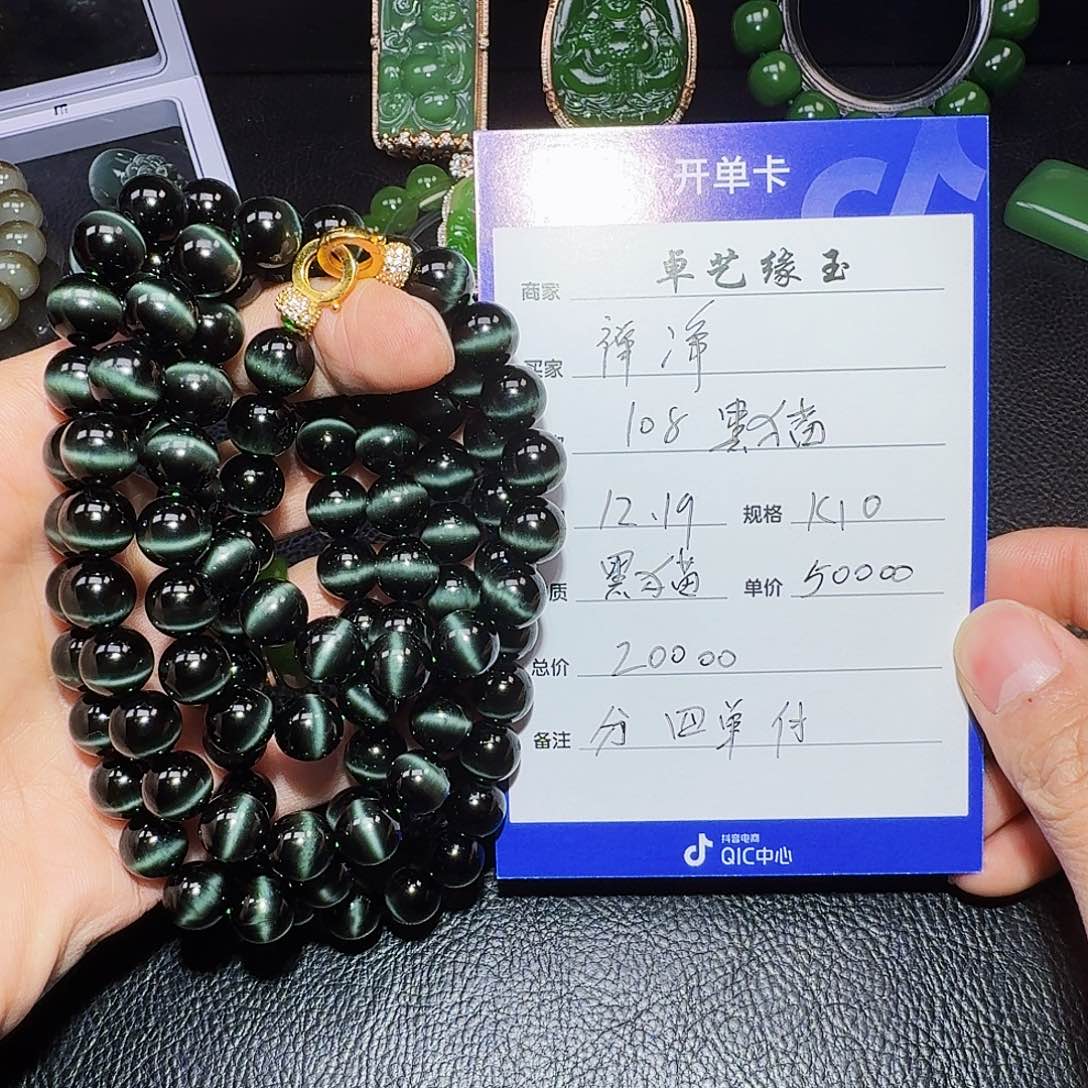 开单卡
商家 卓艺缘玉
买家 禅净
108 黑猫
12.19 规格 K10
质 黑猫 单价 50000
总价 200000
备注 分四单付
抖音电商
QIC中心